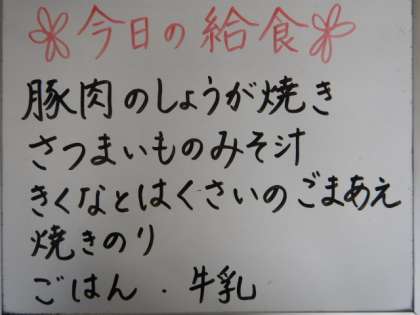 今日の給食
豚肉のしょうが焼き
さつまいものみそ汁
きくなとはくさいのごまあえ
焼きのり
ごはん・牛乳